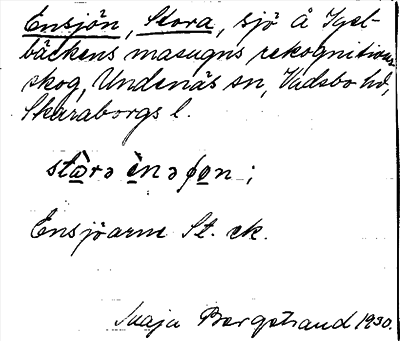 Ensjön, Stora, sjö å Igel-
bäckens masugns rekognitions-
skog, Undenäs sn, Vadsbo hd,
Skaraborgs l.
stɷ̀rə ènəɸɷn ;
Ensjöarne St. ek.
Maja Bergstrand 1930.